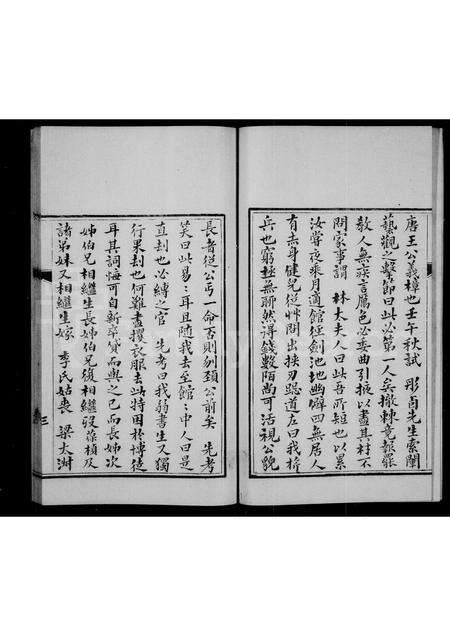 唐王公義樟也壬午秋試 彤甫先生索闈
藝觀之擊節曰此必第一人矣撤棘竟報罷
教人無疾言厲色必委曲引掖以盡其材不
問家事謂 林太夫人曰此吾所短也以累
汝嘗夜乘月適館經劍池地幽僻四無居人
有赤身健兒從草間出挾刃跽道左曰我捨
兵也窮極無聊然得錢數陌尚可活視公貌
長者從公丐一命否則刎頸公前矣 先考
笑曰此易易耳且隨我去至館館中人曰是
直刦也必縛之官 先考曰我弱書生又獨
行果刦也何難盡攫衣服去此特困於博徒
耳其詞悔可自新卒贷而與之已而長姊次
姊伯兄相繼生長姊伯兄復相繼殁葆楨及
諸弟妹又相繼生嫁 季氏姑喪 梁太淑
三